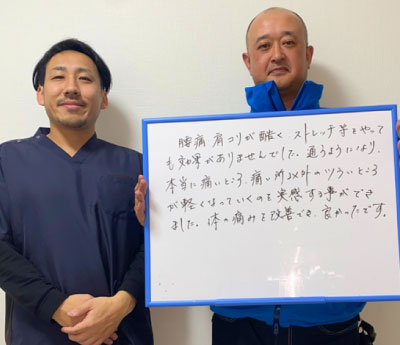 腰痛 肩コリが酷く ストレッチ等をやって
も効果がありませんでした。通うようになり、
本当に痛いところ、痛い所以外のツライところ
が軽くなっていくのを実感する事ができ
ました。体の痛みを改善でき、良かったです。